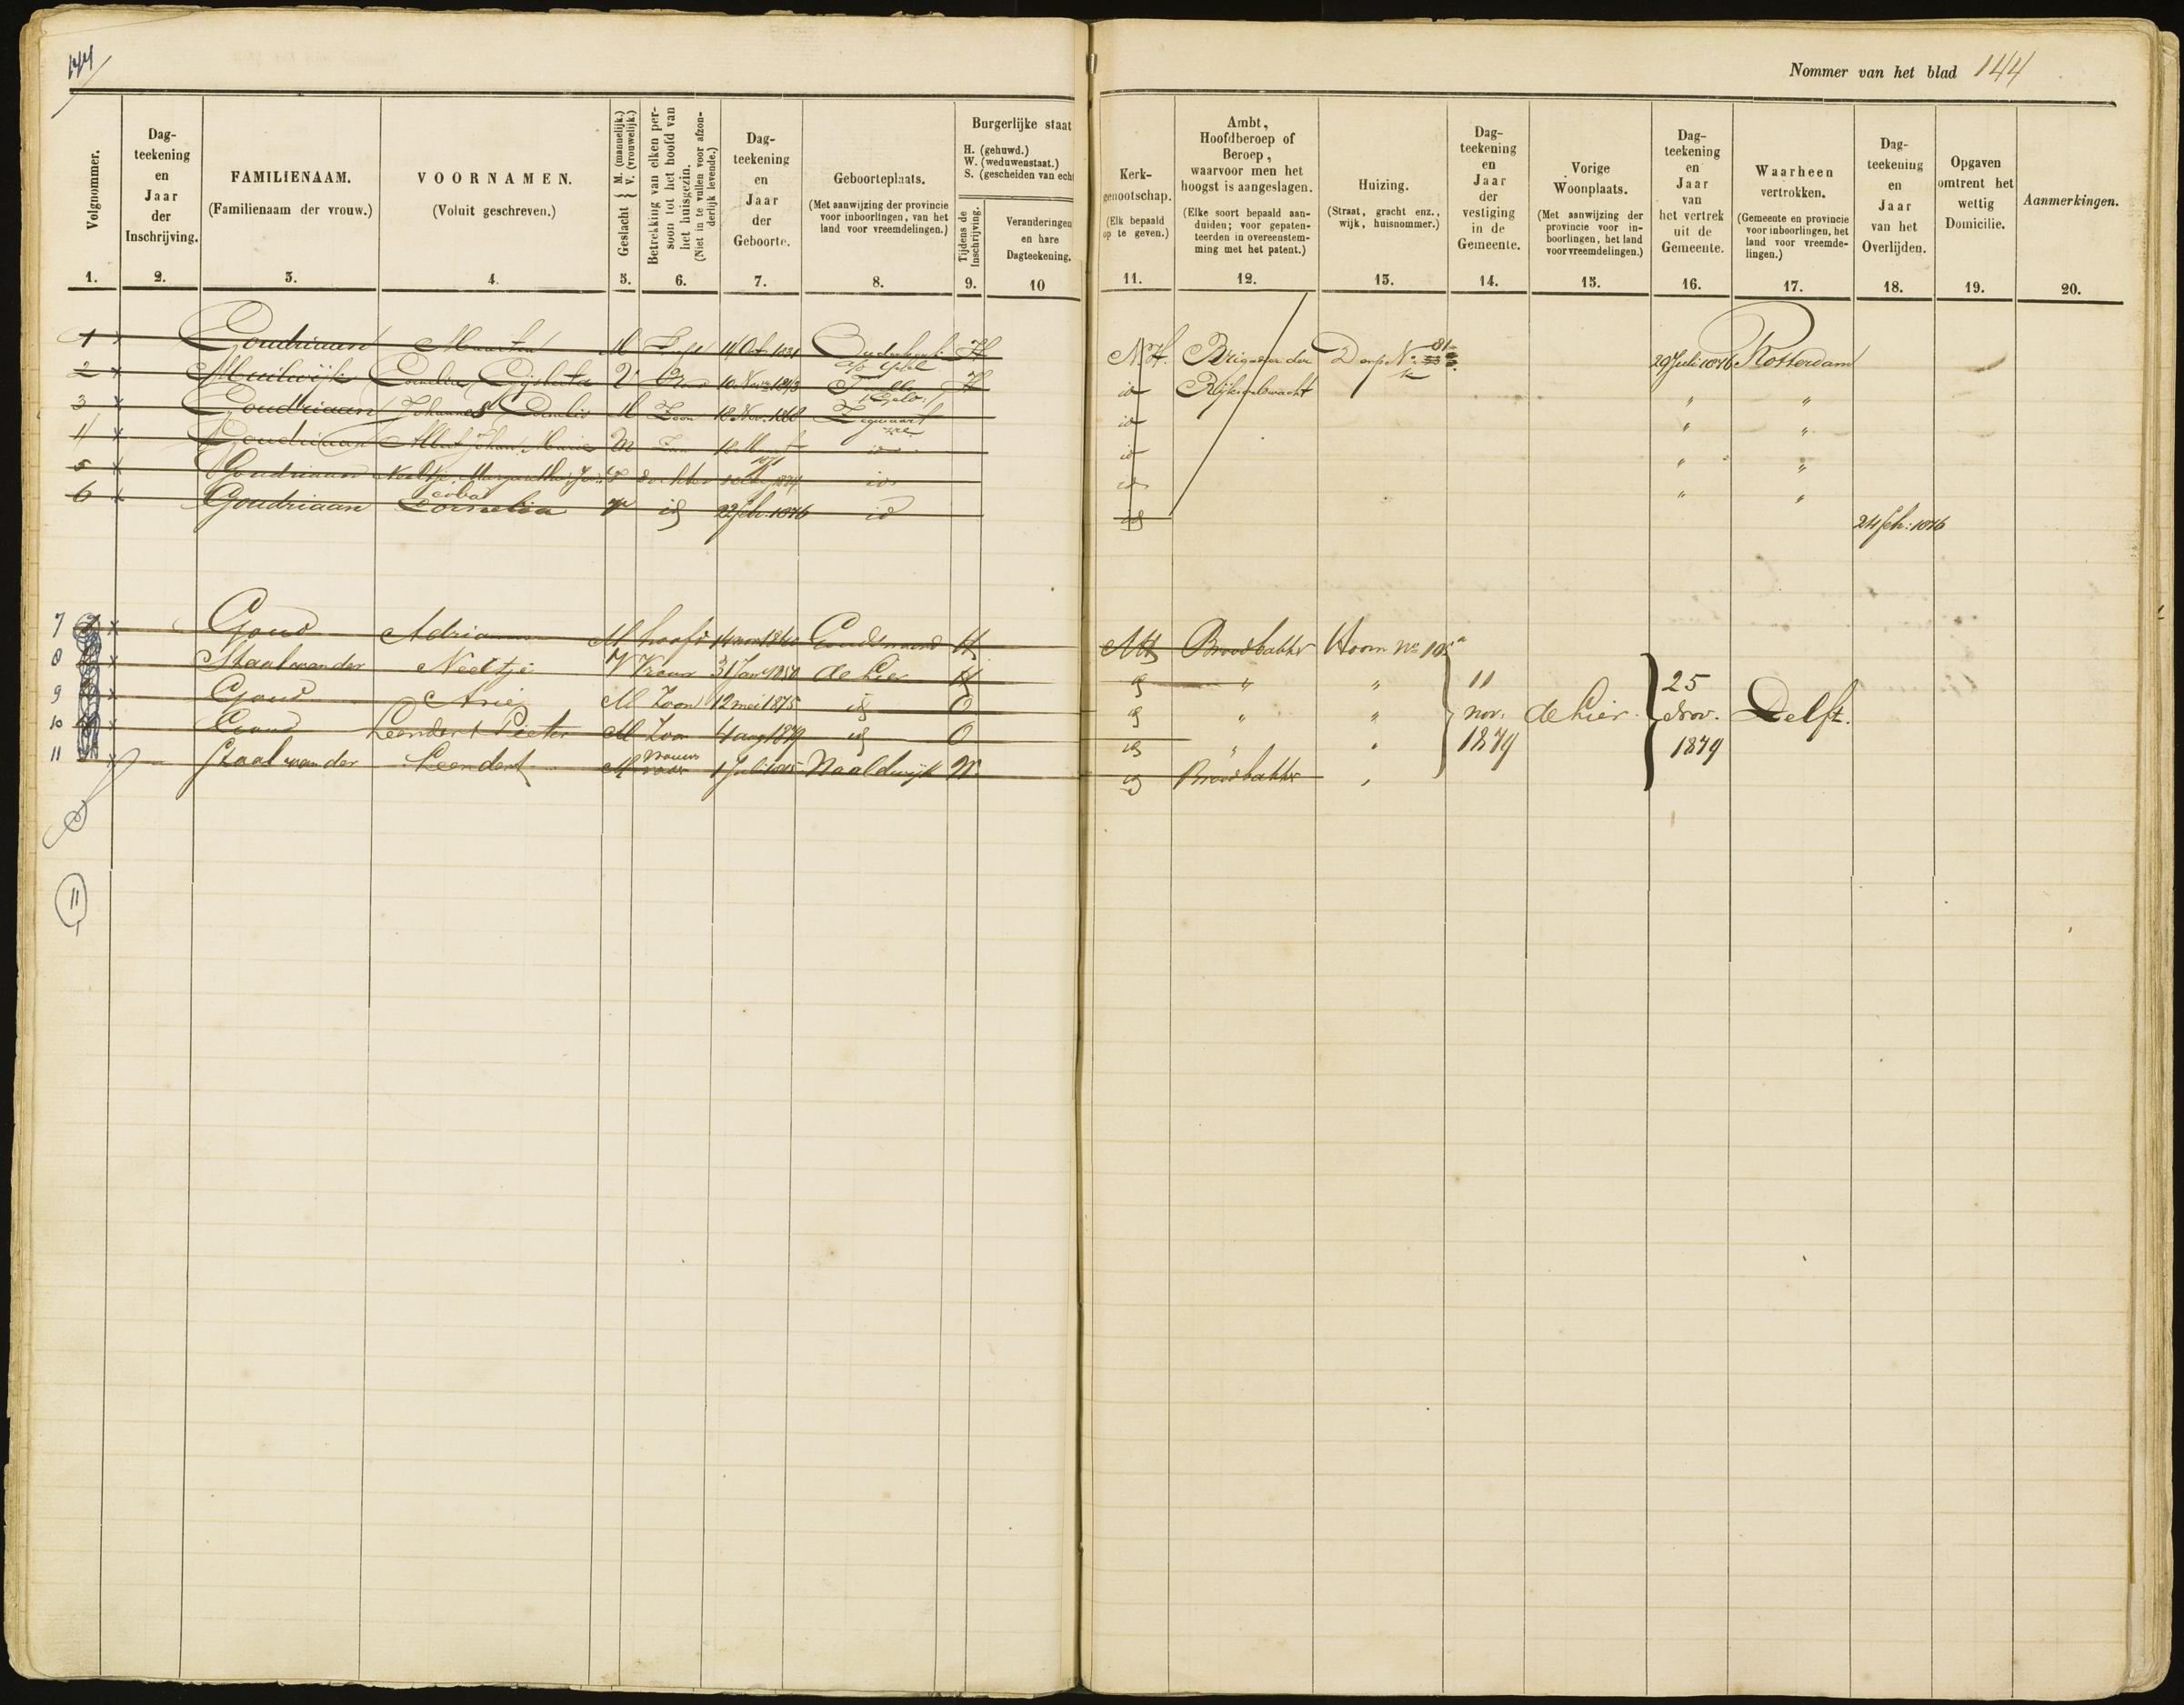 144
Nommer van het blad 144
Volgnommer.
1.
Dag-
teekening
en
Jaar
der
Inschrijving.
2.
FAMILIENAAM.
(Familienaam der vrouw.)
3.
VOORNAMEN.
(Voluit geschreven.)
4.
Geslacht { M. (mannelijk.)
V. (vrouwelijk.)
5.
Betrekking van elken per-
soon tot het hoofd van
het huisgezin.
(Niet in te vullen voor afzon-
derlijk levende.)
6.
Dag-
teekening
en
Jaar
der
Geboorte.
7.
Geboorteplaats.
(Met aanwijzing der provincie
voor inboorlingen, van het
land voor vreemdelingen.)
8.
Burgerlijke staat
H. (gehuwd.)
W. (weduwenstaat.)
S. (gescheiden van echt
Tijdens de
Inschrijving.
9.
Veranderingen
en hare
Dagteekening.
10
Kerk-
genootschap.
(Elk bepaald
op te geven.)
11.
Ambt,
Hoofdberoep of
Beroep,
waarvoor men het
hoogst is aangeslagen.
(Elke soort bepaald aan-
duiden; voor gepaten-
teerden in overeenstem-
ming met het patent.)
12.
Huizing.
(Straat, gracht enz.,
wijk, huisnommer.)
13.
Dag-
teekening
en
Jaar
der
vestiging
in de
Gemeente.
14.
Vorige
Woonplaats.
(Met aanwijzing der
provincie voor in-
boorlingen, het land
voor vreemdelingen.)
15.
Dag-
teekening
en
Jaar
van
het vertrek
uit de
Gemeente.
16.
Waarheen
vertrokken.
(Gemeente en provincie
voor inboorlingen, het
land voor vreemde-
lingen.)
17.
Dag-
teekening
en
Jaar
van het
Overlijden.
18.
Opgaven
omtrent het
wettig
Domicilie.
19.
Aanmerkingen.
20.
1 x Goudriaan Maarten M 14 Oct 1831 H N.H. Brigadier der 81 29 Juli 1876 Rotterdam
2 x Muilwijk Cornelia Gijsberta V 10 Nov 1843 H id Rijksveldwacht " "
3 x Goudriaan Johannes Cornelis M Zoon 18 Nov. 1868 id " "
4 x Goudriaan M id id " "
5 x Goudriaan Neeltje Margaretha Ja- V dochter id id " "
coba
6 x Goudriaan Cornelia V id 22 feb. 1876 id id 24 feb: 1876
7 x Goud Adrianus M hoofd H NH Broodbakker Hoorn No 105a
8 x Staal van der Neeltje V Vrouw 31 Jan 1850 de Lier H id " " 11 25
9 x Goud Arie M Zoon 12 mei 1875 id O id " " nov. de Lier. nov. Delft.
10 x Goud Leendert Pieter M Zoon 4 aug 1879 id O id " " 1879 1879
11 x Staal van der Leendert M vrouws vader Naaldwijk W. id Broodbakker "
11